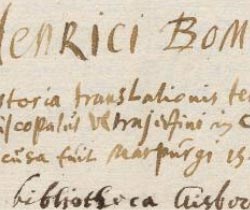 HENRICI BOM
storia translationis te
iscopalis Ultrajessini in
cusa fuit Marpurgi 15
bibliotheca Gisb